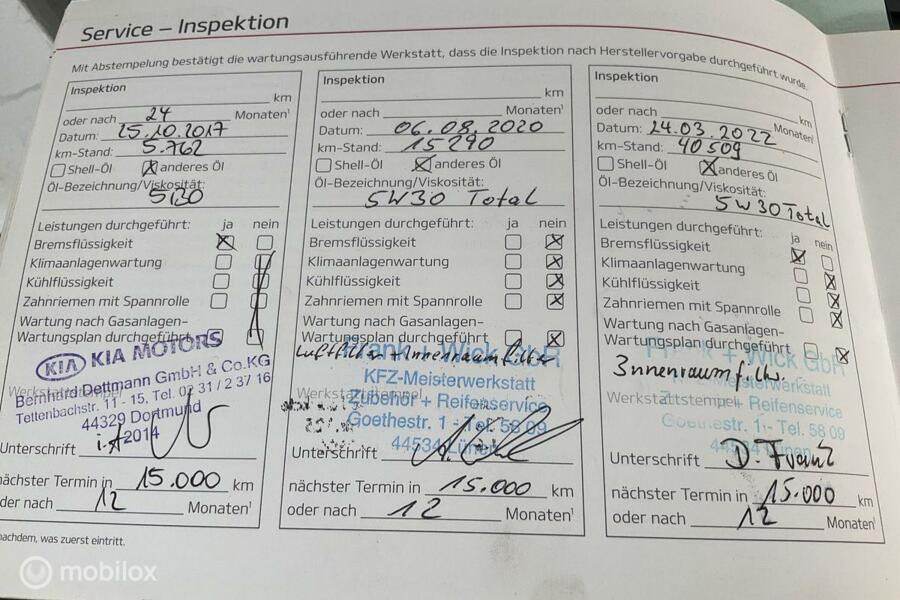 Service – Inspektion
Mit Abstempelung bestätigt die wartungsausführende Werkstatt, dass die Inspektion nach Herstellervorgabe durchgeführt wurde.
Inspektion
km
oder nach 24 Monaten¹
Datum: 25.10.2017
km-Stand: 5.762
Shell-Öl anderes Öl
Öl-Bezeichnung/Viskosität:
5W30
Leistungen durchgeführt: ja nein
Bremsflüssigkeit
Klimaanlagenwartung
Kühlflüssigkeit
Zahnriemen mit Spannrolle
Wartung nach Gasanlagen-
Wartungsplan durchgeführt
KIA KIA MOTORS
Bernhard Dettmann GmbH & Co.KG
Tettenbachstr. 11 - 15. Tel. 02 31 / 2 37 16
44329 Dortmund
2014
Unterschrift i.A
nächster Termin in 15.000 km
oder nach 12 Monaten¹
nachdem, was zuerst eintritt.
Inspektion
km
oder nach Monaten¹
Datum: 06.08.2020
km-Stand: 15290
Shell-Öl anderes Öl
Öl-Bezeichnung/Viskosität:
5W30 Total
Leistungen durchgeführt: ja nein
Bremsflüssigkeit
Klimaanlagenwartung
Kühlflüssigkeit
Zahnriemen mit Spannrolle
Wartung nach Gasanlagen-
Wartungsplan durchgeführt
Luftfilter + Innenraumfilter
Frank + Wick GbR
KFZ-Meisterwerkstatt
Zubehör + Reifenservice
Goethestr. 1 - Tel. 58 09
44534 Lünen
Unterschrift
nächster Termin in 15.000 km
oder nach 12 Monaten¹
Inspektion
km
oder nach Monaten¹
Datum: 24.03.2022
km-Stand: 40509
Shell-Öl anderes Öl
Öl-Bezeichnung/Viskosität:
5W30 Total
Leistungen durchgeführt: ja nein
Bremsflüssigkeit
Klimaanlagenwartung
Kühlflüssigkeit
Zahnriemen mit Spannrolle
Wartung nach Gasanlagen-
Wartungsplan durchgeführt
Frank + Wick GbR
Innenraumfilter
KFZ-Meisterwerkstatt
Werkstattstempel
+ Reifenservice
Goethestr. 1 - Tel. 58 09
44534 Lünen
Unterschrift D. Franz
nächster Termin in 15.000 km
oder nach 12 Monaten¹
mobilox